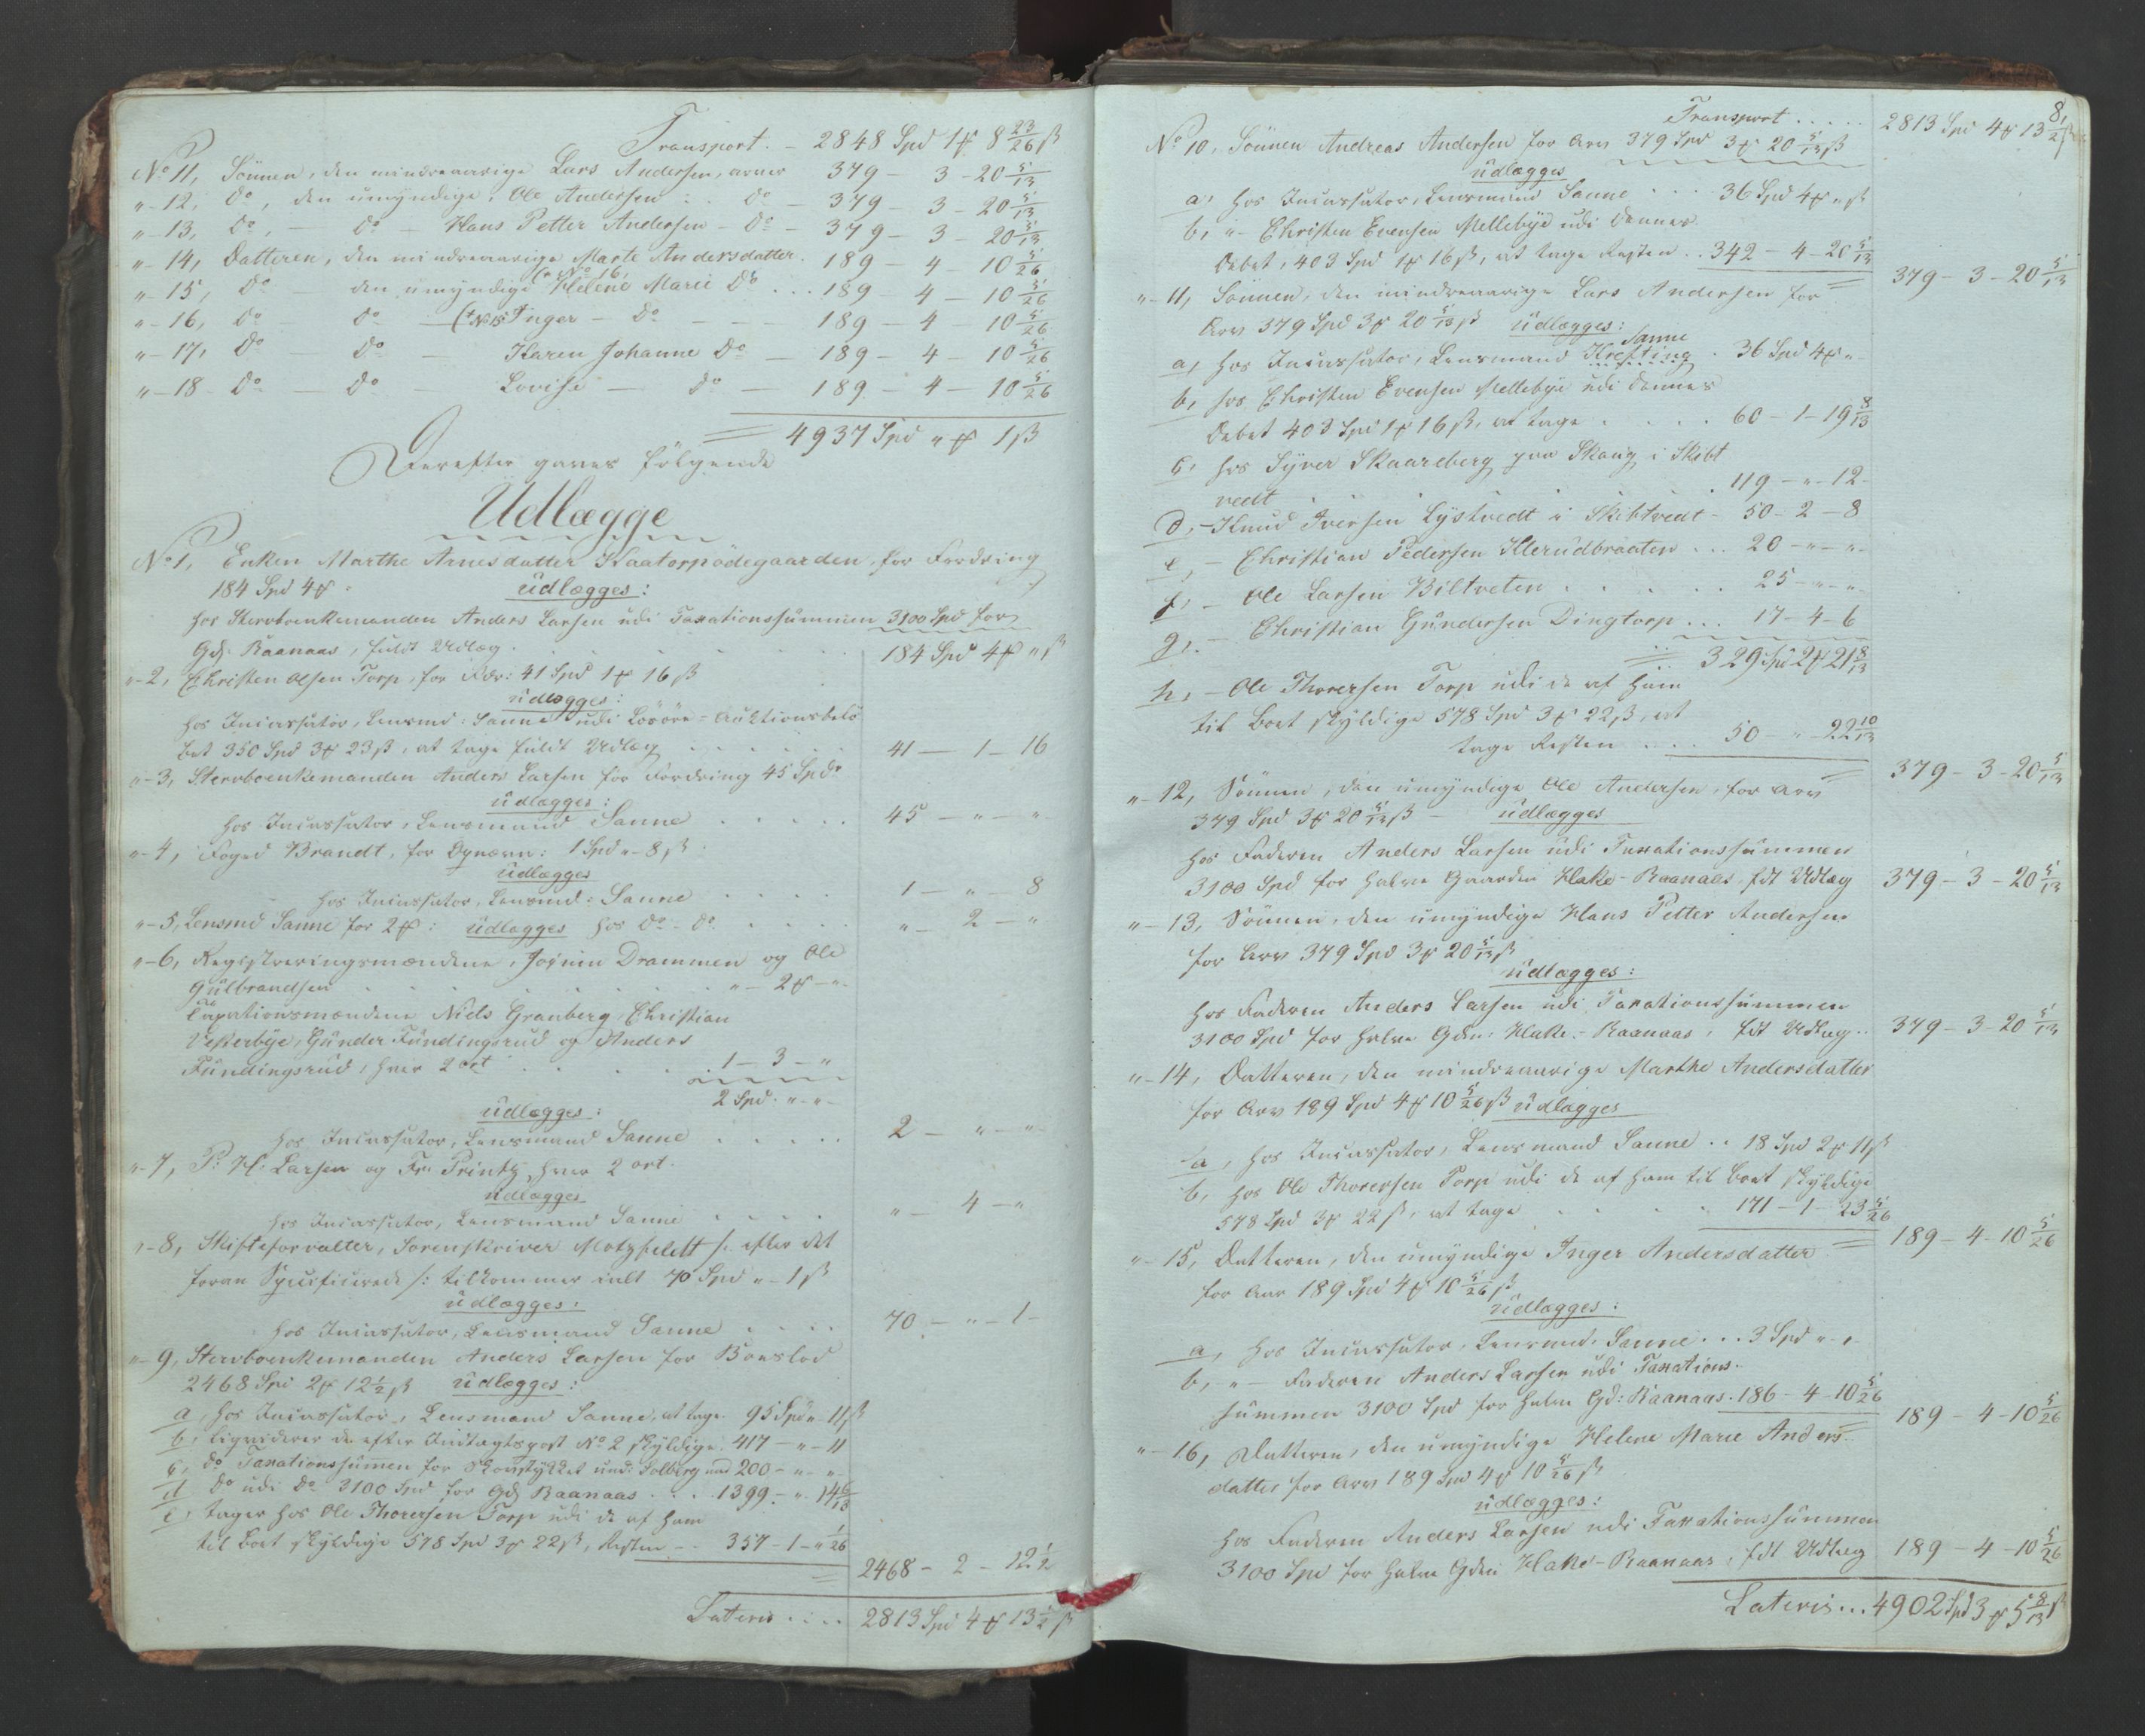 Transport. – 2848 Spd 1 ₰ 8 23/26 ß
No 11, Sönnen, den mindreaarige Lars Andersen, arver 379 – 3 – 20 5/13
" – 12, Do, den umyndige, Ole Andersen . . Do – 379 – 3 – 20 5/13
" – 13, Do, – Do – Hans Petter Andersen – Do – 379 – 3 – 20 5/13
" – 14, Datteren, den mindreaarige Marte Andersdatter. 189 – 4 – 10 5/26
" – 15, Do – den umyndige (+ No 16, Helene Marie Do . . . 189 – 4 – 10 5/26
" – 16, Do – Do – (+ No 15 Inger – Do – – – 189 – 4 – 10 5/26
" – 17, Do – Do – Karen Johanne Do – 189 – 4 – 10 5/26
" – 18 – Do – Do – Lovise – Do – 189 – 4 – 10 5/26
4937 Spd " ₰ 1 ß
Derefter gaves følgende
Udlægge
No 1, Enken Marthe Arnesdatter Kaatorpödegaarden, for Fordring
184 Spd 4 ₰ – udlægges:
hos Stervboenkemanden Anders Larsen udi Taxationssummen 3100 Spd for
Gd. Raanaas, fuldt Udlæg . . . 184 Spd 4 ₰ " ß
" – 2, Christen Olsen Torp, for Fdr: 41 Spd 1 ₰ 16 ß
udlægges:
hos Incassator, Lensmd: Sanne udi Lösöre-Auktionsbelö-
bet 350 Spd 3 ₰ 23 ß, at tage fuldt Udlæg . . . 41 – 1 – 16
" – 3, Stervboenkemanden Anders Larsen for Fordring 45 Spd.
udlægges:
hos Incassator, Lensmand Sanne . . . . 45 – " – "
" – 4, Foged Brandt, for 1 Spd " – 8 ß.
udlægges
hos Incassator, Lensmd: Sanne . . . . 1 – " – 8
" – 5, Lensmd Sanne for 2 ₰: udlægges hos Do – Do . . . . " – 2 – "
" – 6, Registreringsmændene, Drammen og Ole
Gulbrandsen . . . . . . " – 2 ₰ – " –
Taxationsmændene Niels Granberg, Christian
Vesterbye, Gunder Fundingsrud og Anders
Fundingsrud, hver 2 ort . . . . 1 – 3 – "
2 Spd. " – " –
udlægges:
hos Incassator, Lensmand Sanne . . . . . 2 – " – "
" – 7, P. H. Larsen og Fr. Printz, hver 2 ort.
udlægges
hos Incassator, Lensmand Sanne . . . . " – 4 – "
" – 8, Skifteforvalter, Sorenskriver Motzfeldt /: efter det
foran Specificerede :/ tilkommer ialt 70 Spd " – 1 ß
udlægges:
hos Incassator, Lensmand Sanne . . . . 70 – " – 1 –
" – 9, Stervboenkemanden Anders Larsen for Boeslod
2468 Spd 2 ₰ 12 1/2 ß udlægges:
a, hos Incassator, Lensmand Sanne, at tage 95 Spd " – 11 ß
b, liqviderer de efter Indtægtspost No 2 skyldige. 417 – " – 11
c, Do Taxationssummen for Skovstykket und: Solberg med 200 – " – "
d, Do udi Do 3100 Spd for Gd Raanaas . . . 1399 – " – 14 6/13
e, tager hos Ole Thorersen Torp udi de af ham
til Boet skyldige 578 Spd 3 ₰ 22 ß, Resten – . 357 – 1 – " 1/26
2468 – 2 – 12 1/2
Lateris . . . . 2813 Spd 4 ₰ 13 1/2 ß
Transport . . . . . 2813 Spd 4 ₰ 13 1/2 ß
No 10, Sönnen Andreas Andersen for Arv 379 Spd 3 ₰ 20 5/13 ß
udlægges
a, hos Incassator, Lensmand Sanne . . . 36 Spd 4 ₰ " ß
b, " – Christen Evensen Mellebye udi dennes
Debet, 403 Spd 1 ₰ 16 ß, at tage Resten . . 342 – 4 – 20 5/13
379 – 3 – 20 5/13
" – 11, Sönnen, den mindreaarige Lars Andersen for
Arv 379 Spd 3 ₰ 20 5/13 ß udlægges:
Sanne
a, hos Incassator, Lensmand Krefting . 36 Spd 4 ₰ " –
b, hos Christen Evensen Mellebye udi dennes
Debet 403 Spd 1 ₰ 16 ß, at tage . . . . 60 – 1 – 19 8/13
c, hos Syver Skaareberg paa Skaug i Skibt
vedt . . . . 119 – " – 12 –
d, – Knud Iversen Lystvedt i Skibtvedt – 50 – 2 – 8
e, – Christian Pedersen Klerudbraaten . . . 20 – " – " –
f, – Ole Larsen Biltveten . . . . . . 25 – " – "
g, – Christian Gundersen Dingtorp . . . 17 – 4 – 6
329 Spd 2 ₰ 21 8/13
h, – Ole Thorersen Torp udi de af ham
til Boet skyldige 578 Spd 3 ₰ 22 ß, at
tage Resten . . . . 50 – " – 22 10/13
379 – 3 – 20 5/13
" – 12, Sönnen, den umyndige Ole Andersen, for Arv
379 Spd 3 ₰ 20 5/13 ß – udlægges
hos Faderen Anders Larsen udi Taxationssummen
3100 Spd for halve Gaarden Hake-Raanaas, fdt Udlæg 379 – 3 – 20 5/13
" – 13, Sönnen, den umyndige Hans Petter Andersen
for Arv 379 Spd 3 ₰ 20 5/13 ß
udlægges:
hos Faderen Anders Larsen udi Taxationssummen
3100 Spd for halve Gdn: Hake-Raanaas, fdt Udlæg . . 379 – 3 – 20 5/13
" – 14, Datteren, den mindreaarige Marthe Andersdatter
for Arv 189 Spd 4 ₰ 10 5/26 ß udlægges
a, hos Incassator, Lensmand Sanne . . 18 Spd 2 ₰ 11 ß
b, hos Ole Thorersen Torp udi de af ham til Boet skyldige
578 Spd 3 ₰ 22 ß, at tage . . . . 171 – 1 – 23 5/26
189 – 4 – 10 5/26
" – 15, Datteren, den umyndige Inger Andersdatter
for Arv 189 Spd 4 ₰ 10 5/26 ß
udlægges:
a, hos Incassator, Lensmd. Sanne . . . 3 Spd " – " –
b, " – Faderen Anders Larsen udi Taxations-
summen 3100 Spd for halve Gd: Raanaas . 186 – 4 – 10 5/26
189 – 4 – 10 5/26
" – 16, Datteren, den umyndige Helene Marie Anders-
datter for Arv 189 Spd 4 ₰ 10 5/26 ß
udlægges:
hos Faderen Anders Larsen udi Taxationssummen
3100 Spd for halve Gden Hake-Raanaas, fdt Udlæg 189 – 4 – 10 5/26
Lateris . . . 4902 Spd 3 ₰ 5 8/13 ß